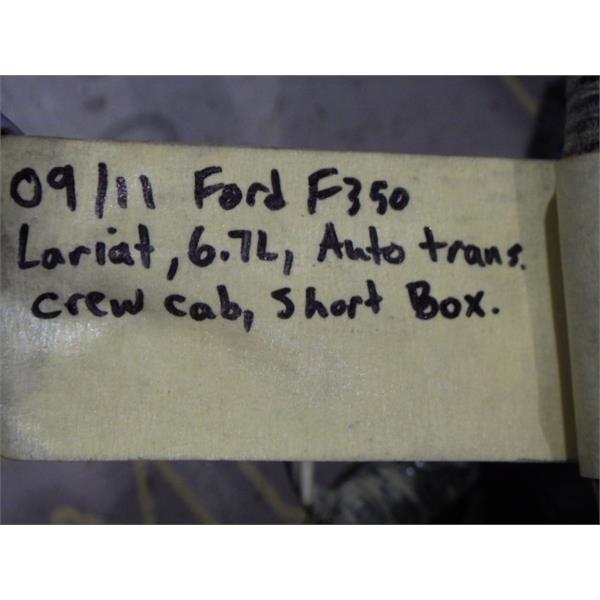 09/11 Ford F350
Lariat, 6.7L, Auto trans.
crew cab, short Box.